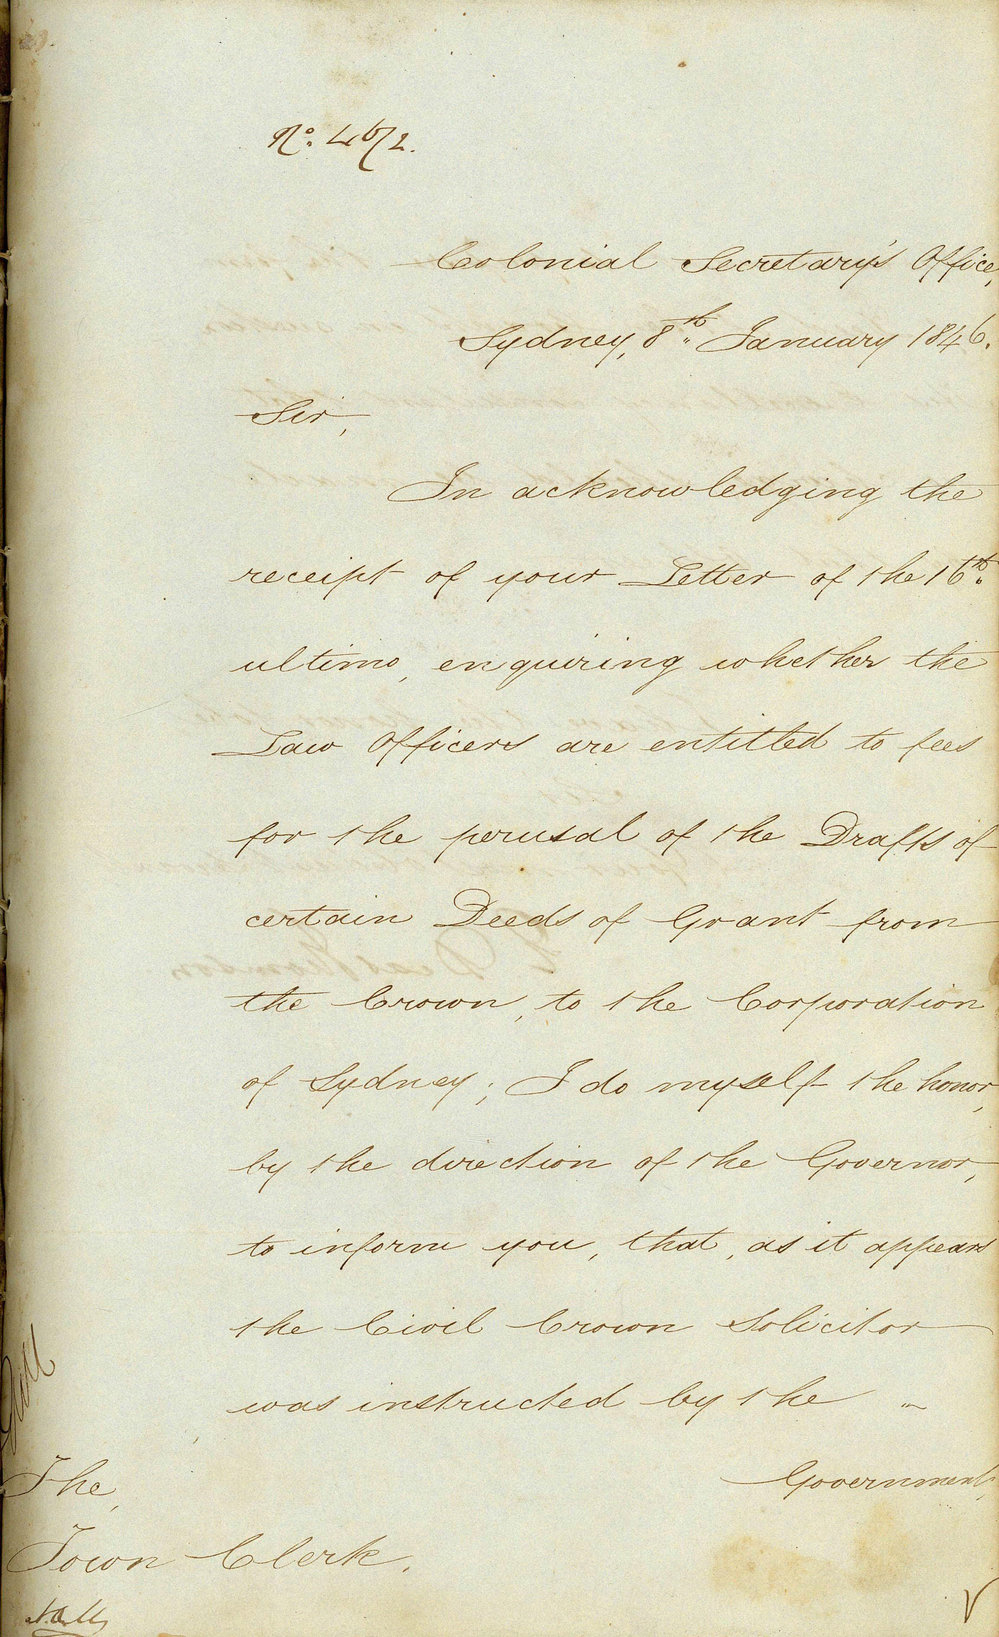 No. 46/2.
Colonial Secretary's Office,
Sydney, 8th January 1846.
Sir,
In acknowledging the
receipt of your Letter of the 16th
ultimo, enquiring whether the
Law Officers are entitled to fees
for the perusal of the Drafts of
certain Deeds of Grant from
the Crown, to the Corporation
of Sydney; I do myself the honor,
by the direction of the Governor,
to inform you, that, as it appears
the Civil Crown Solicitor
was instructed by the
Government,
The
Town Clerk.